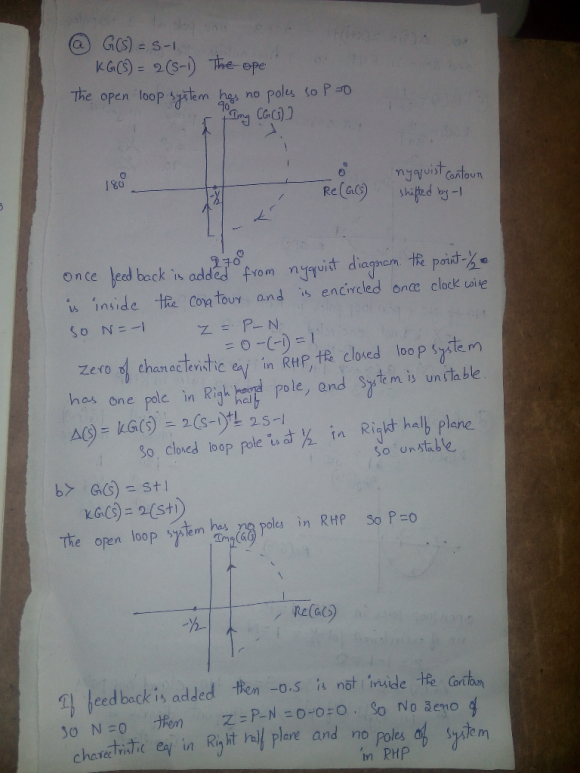 (a) G(s) = s-1
KG(s) = 2(s-1) The ope
The open loop system has no poles so P=0
90°
Img (G(s))
180°
-½
0°
Re(G(s)
nyquist contour
shifted by -1
270°
Once feedback is added from nyquist diagram the point -½
is inside the contour and is encircled once clock wise
so N=-1 Z = P-N
= 0-(-1) = 1
Zero of characteristic eq in RHP, the closed loop system
has one pole in Righ half pole, and system is unstable
Δ(s) = KG(s) = 2(s-1)+1 = 2s-1
so closed loop pole is at ½ in Right half plane
so unstable
b> G(s) = s+1
KG(s) = 2(s+1)
The open loop system has no poles in RHP so P=0
Img(G(s)
-½
Re(G(s)
If feedback is added then -0.5 is not inside the contour
so N=0 then Z=P-N=0-0=0. So No zero of
charectristic eq in Right half plane and no poles of system
in RHP